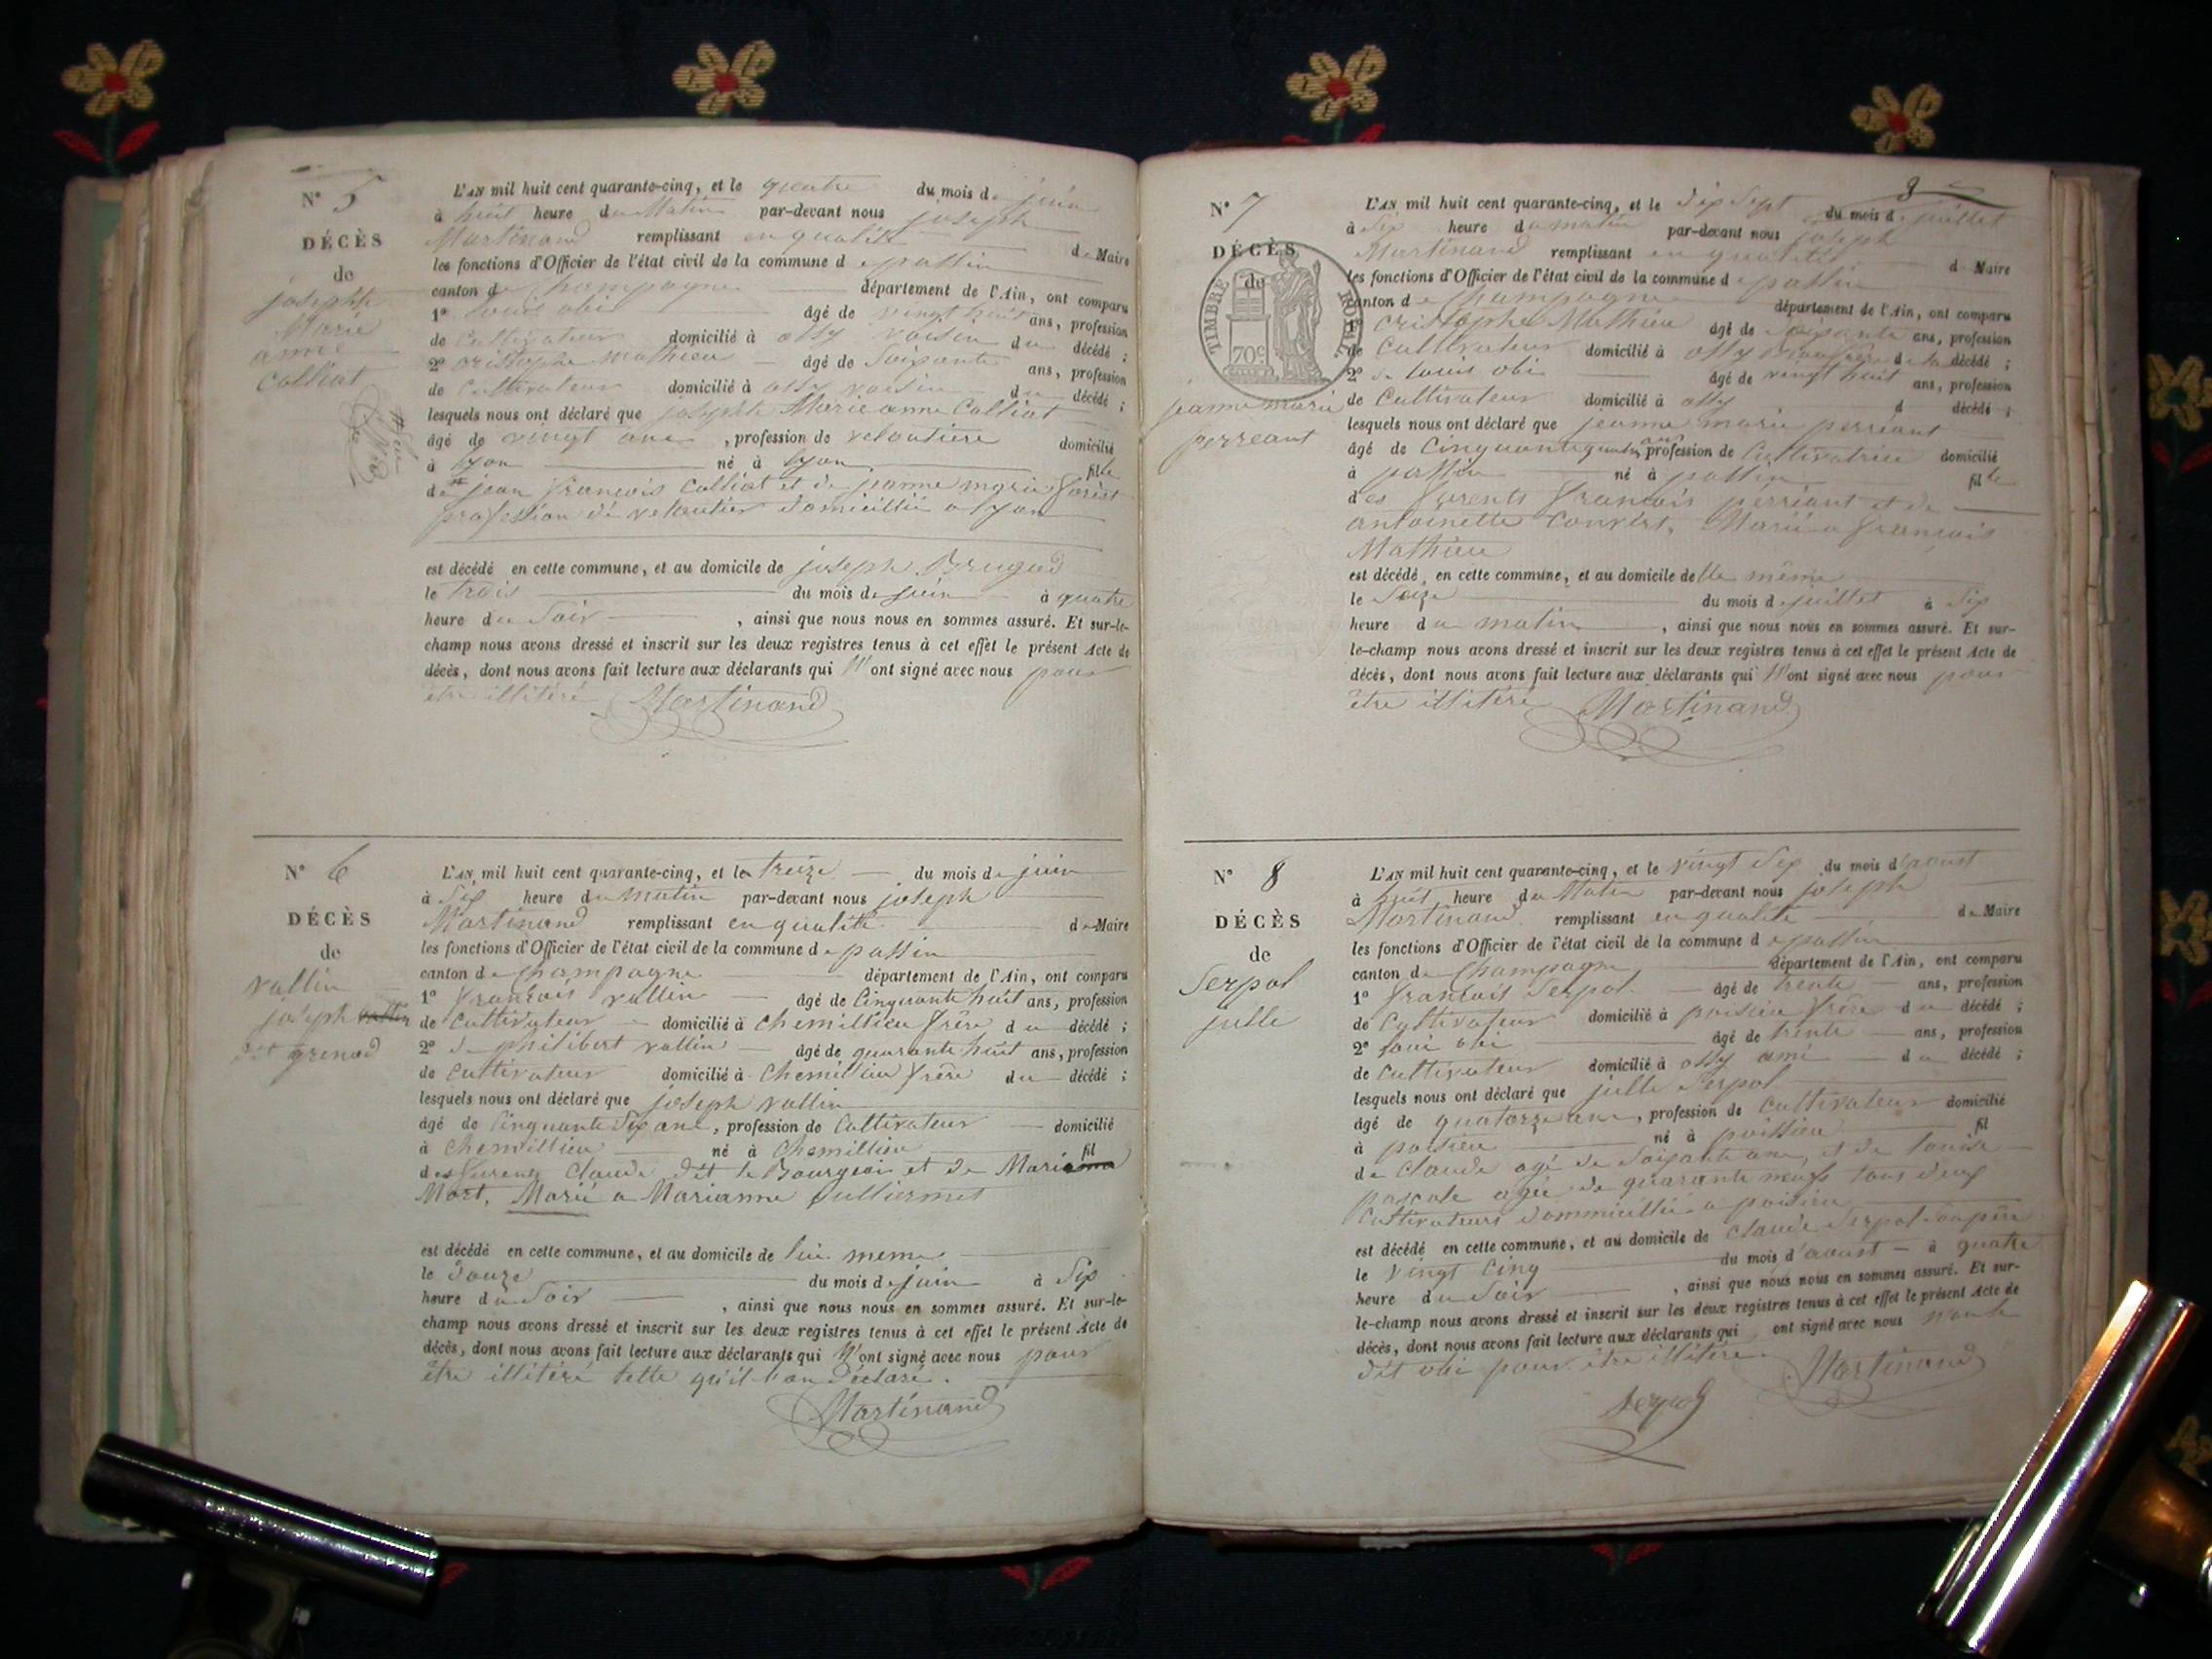 N° 5
DÉCÈS
de
josephte
Marie
anne
Colliat
L'AN mil huit cent quarante-cinq, et le quatre du mois de juin
à huit heure du Matin par-devant nous joseph
Martinand remplissant en qualité de Maire
les fonctions d'Officier de l'état civil de la commune de passin
canton de Champagne département de l'Ain, ont comparu
1° Louis obi âgé de vingt huit ans, profession
de Cultivateur domicilié à ossy voisin du décédé ;
2° cristophe Mathieu âgé de Soixante ans, profession
de Cultivateur domicilié à ossy voisin du décédé ;
lesquels nous ont déclaré que josephte Marie anne Colliat
âgé de vingt ans, profession de veloutière domicilié
à lyon né à lyon fille
de jean françois Colliat et de jeanne marie
profession de veloutier domicillié a lyon
est décédé en cette commune, et au domicile de joseph Brugod
le trois du mois de juin à quatre
heure du Soir, ainsi que nous nous en sommes assuré. Et sur-le-
champ nous avons dressé et inscrit sur les deux registres tenus à cet effet le présent Acte de
décès, dont nous avons fait lecture aux déclarants qui N'ont signé avec nous pour
être illitéré Martinand
N° 6
DÉCÈS
de
vallin
joseph
dit grenod
L'AN mil huit cent quarante-cinq, et le treize du mois de juin
à Six heure du matin par-devant nous joseph
Martinand remplissant en qualité de Maire
les fonctions d'Officier de l'état civil de la commune de passin
canton de Champagne département de l'Ain, ont comparu
1° françois vallin âgé de Cinquante huit ans, profession
de Cultivateur domicilié à Chemillieu frère du décédé ;
2° de philibert vallin âgé de quarante huit ans, profession
de Cultivateur domicilié à Chemillieu frère du décédé ;
lesquels nous ont déclaré que joseph vallin
âgé de Cinquante Six ans, profession de Cultivateur domicilié
à Chemillieu né à Chemillieu fil
des Claude dit le Bourgeois et de Marie
Mort, Marié a Marianne Julliermet
est décédé en cette commune, et au domicile de lui meme
le Douze du mois de juin à Six
heure du Soir, ainsi que nous nous en sommes assuré. Et sur-le-
champ nous avons dressé et inscrit sur les deux registres tenus à cet effet le présent Acte de
décès, dont nous avons fait lecture aux déclarants qui N'ont signé avec nous pour
être illitéré telle qu'il l'on déclaré.
Martinand
8
N° 7
DÉCÈS
de
TIMBRE ROYAL
70c
jeanne marie
perreant
L'AN mil huit cent quarante-cinq, et le dix Sept du mois de juillet
à Six heure du matin par-devant nous joseph
Martinand remplissant en qualité de Maire
les fonctions d'Officier de l'état civil de la commune de passin
canton de Champagne département de l'Ain, ont comparu
1° cristophe Mathieu âgé de Soixante ans, profession
de Cultivateur domicilié à ossy de la décédé ;
2° de louis obi âgé de vingt huit ans, profession
de Cultivateur domicilié à ossy d décédé ;
lesquels nous ont déclaré que jeanne marie perréant
âgé de Cinquante quatre ans, profession de Cultivatrice domicilié
à passin né à passin fille
des françois perréant et de
antoinette Convert, Marié a françois
Mathieu
est décédé, en cette commune, et au domicile de lle même
le Seize du mois de juillet à Six
heure du matin, ainsi que nous nous en sommes assuré. Et sur-
le-champ nous avons dressé et inscrit sur les deux registres tenus à cet effet le présent Acte de
décès, dont nous avons fait lecture aux déclarants qui N'ont signé avec nous pour
être illitéré Martinand
N° 8
DÉCÈS
de
Serpol
julle
L'AN mil huit cent quarante-cinq, et le vingt Six du mois d'aoust
à huit heure du Matin par-devant nous joseph
Martinand remplissant en qualité de Maire
les fonctions d'Officier de l'état civil de la commune de passin
canton de Champagne département de l'Ain, ont comparu
1° françois Serpol âgé de trente ans, profession
de Cultivateur domicilié à poisieu frère du décédé ;
2° loui obi âgé de trente ans, profession
de Cultivateur domicilié à ossy ami du décédé ;
lesquels nous ont déclaré que julle Serpol
âgé de quatorze ans, profession de Cultivateur domicilié
à poisieu né à poissieu fil
de Claude agé de Soixante ans, et de louise
pascale agée de quarante neufs tous deux
Cultivateurs dommicillié a poisieu
est décédé en cette commune, et au domicile de Claude Serpol son père
le vingt Cinq du mois d'aoust à quatre
heure du Soir, ainsi que nous nous en sommes assuré. Et sur-
le-champ nous avons dressé et inscrit sur les deux registres tenus à cet effet le présent Acte de
décès, dont nous avons fait lecture aux déclarants qui ont signé avec nous
dit obi pour être illitéré. Martinand
Serpol